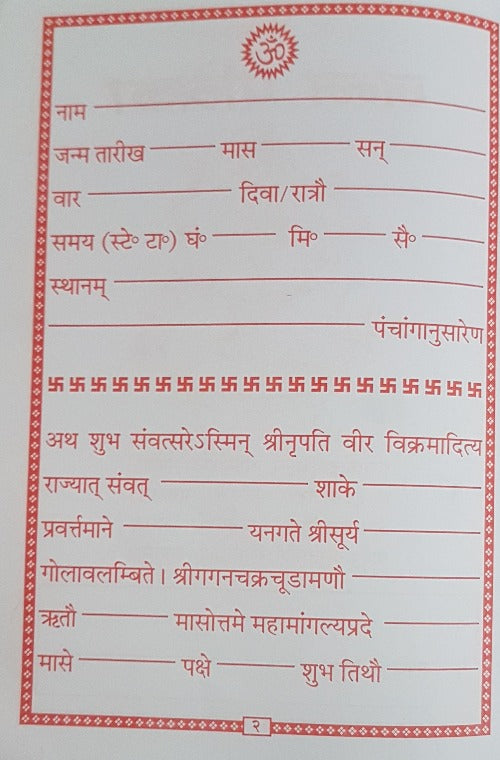 ॐ
नाम
जन्म तारीख मास सन्
वार दिवा/रात्रौ
समय (स्टे॰ टा॰) घं॰ मि॰ सै॰
स्थानम्
पंचांगानुसारेण
अथ शुभ संवत्सरेऽस्मिन् श्रीनृपति वीर विक्रमादित्य
राज्यात् संवत् शाके
प्रवर्त्तमाने यनगते श्रीसूर्य
गोलावलम्बिते। श्रीगगनचक्रचूडामणौ
ऋतौ मासोत्तमे महामांगल्यप्रदे
मासे पक्षे शुभ तिथौ
२